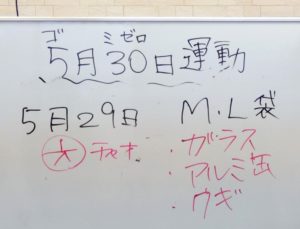 ゴ ミゼロ
5月30日運動
5月29日
大 チャオ
M.L袋
・ガラス
・アルミ缶
・ウギ